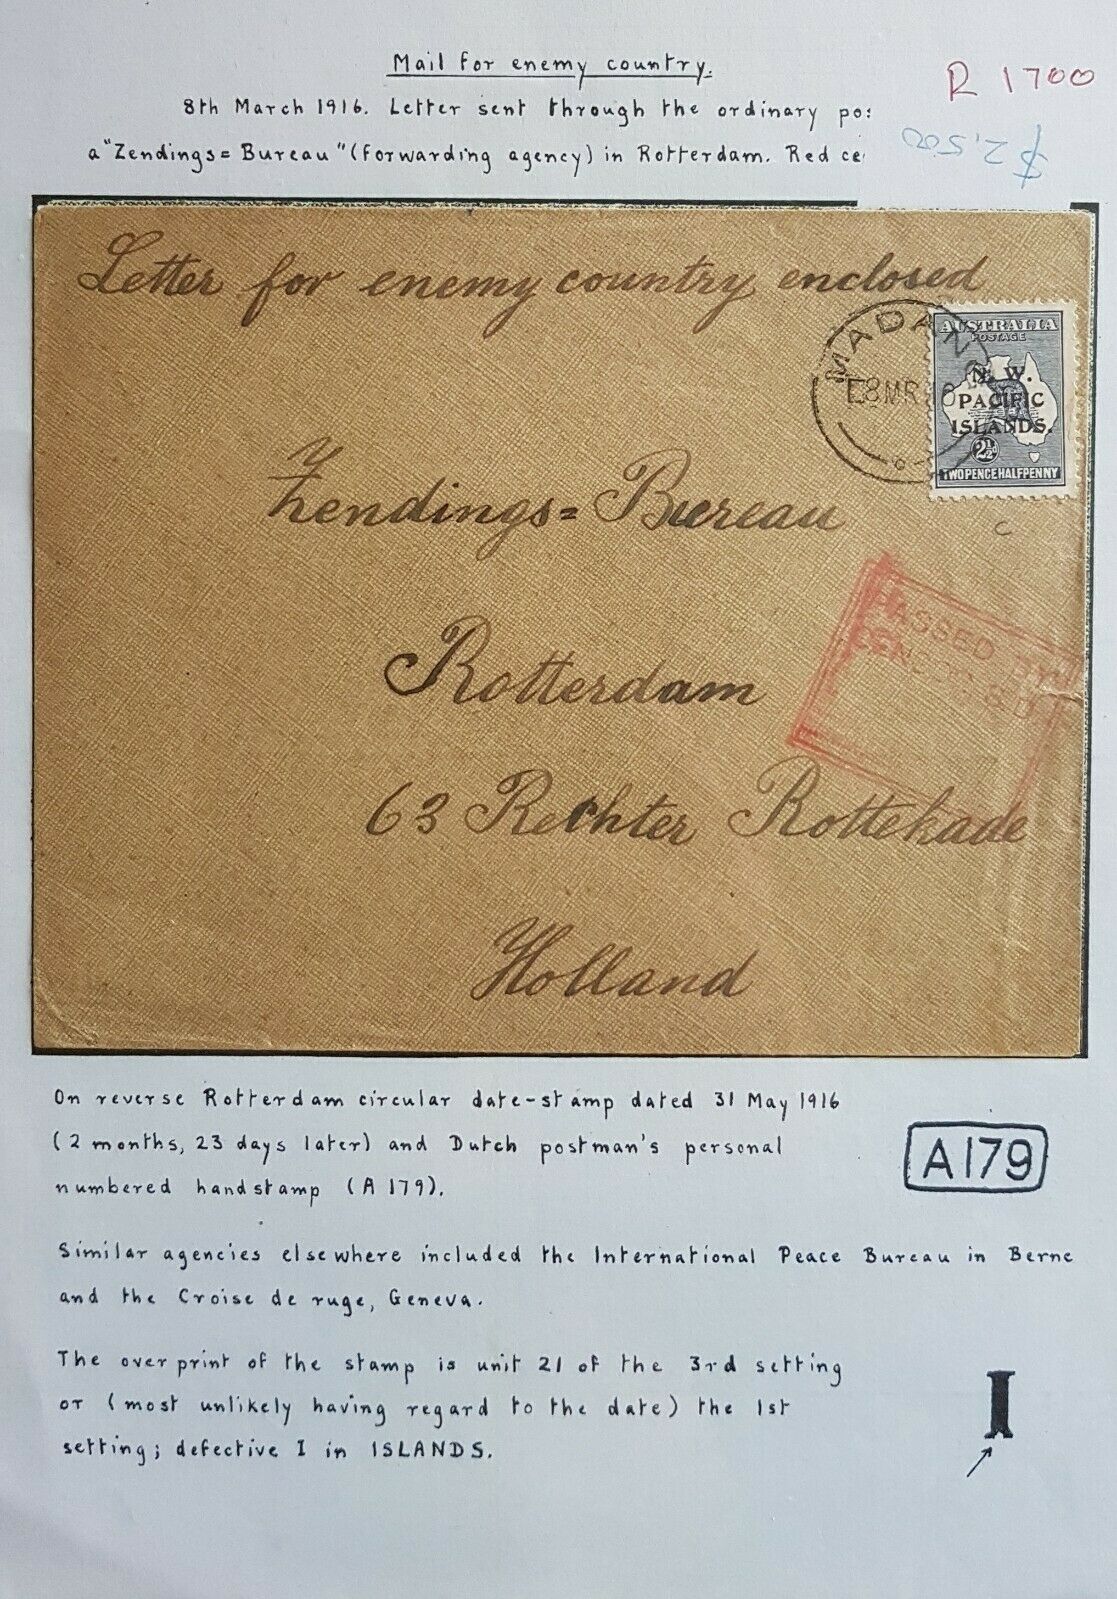 Mail for enemy country.
R 1700
8th March 1916. Letter sent through the ordinary pos
$2,500
a "Zendings= Bureau" (forwarding agency) in Rotterdam. Red ce
Letter for enemy country enclosed
MADANG
8 MR 16
AUSTRALIA
POSTAGE
N. W.
PACIFIC
ISLANDS.
2½D
TWO PENCE HALFPENNY
C
Zendings= Bureau
PASSED BY
CENSOR
Rotterdam
63 Rechter Rottekade
Holland
On reverse Rotterdam circular date-stamp dated 31 May 1916
(2 months, 23 days later) and Dutch postman's personal
numbered handstamp (A 179).
A179
Similar agencies elsewhere included the International Peace Bureau in Berne
and the Croise de ruge, Geneva.
The overprint of the stamp is unit 21 of the 3rd setting
or (most unlikely having regard to the date) the 1st
setting; defective I in ISLANDS.
I